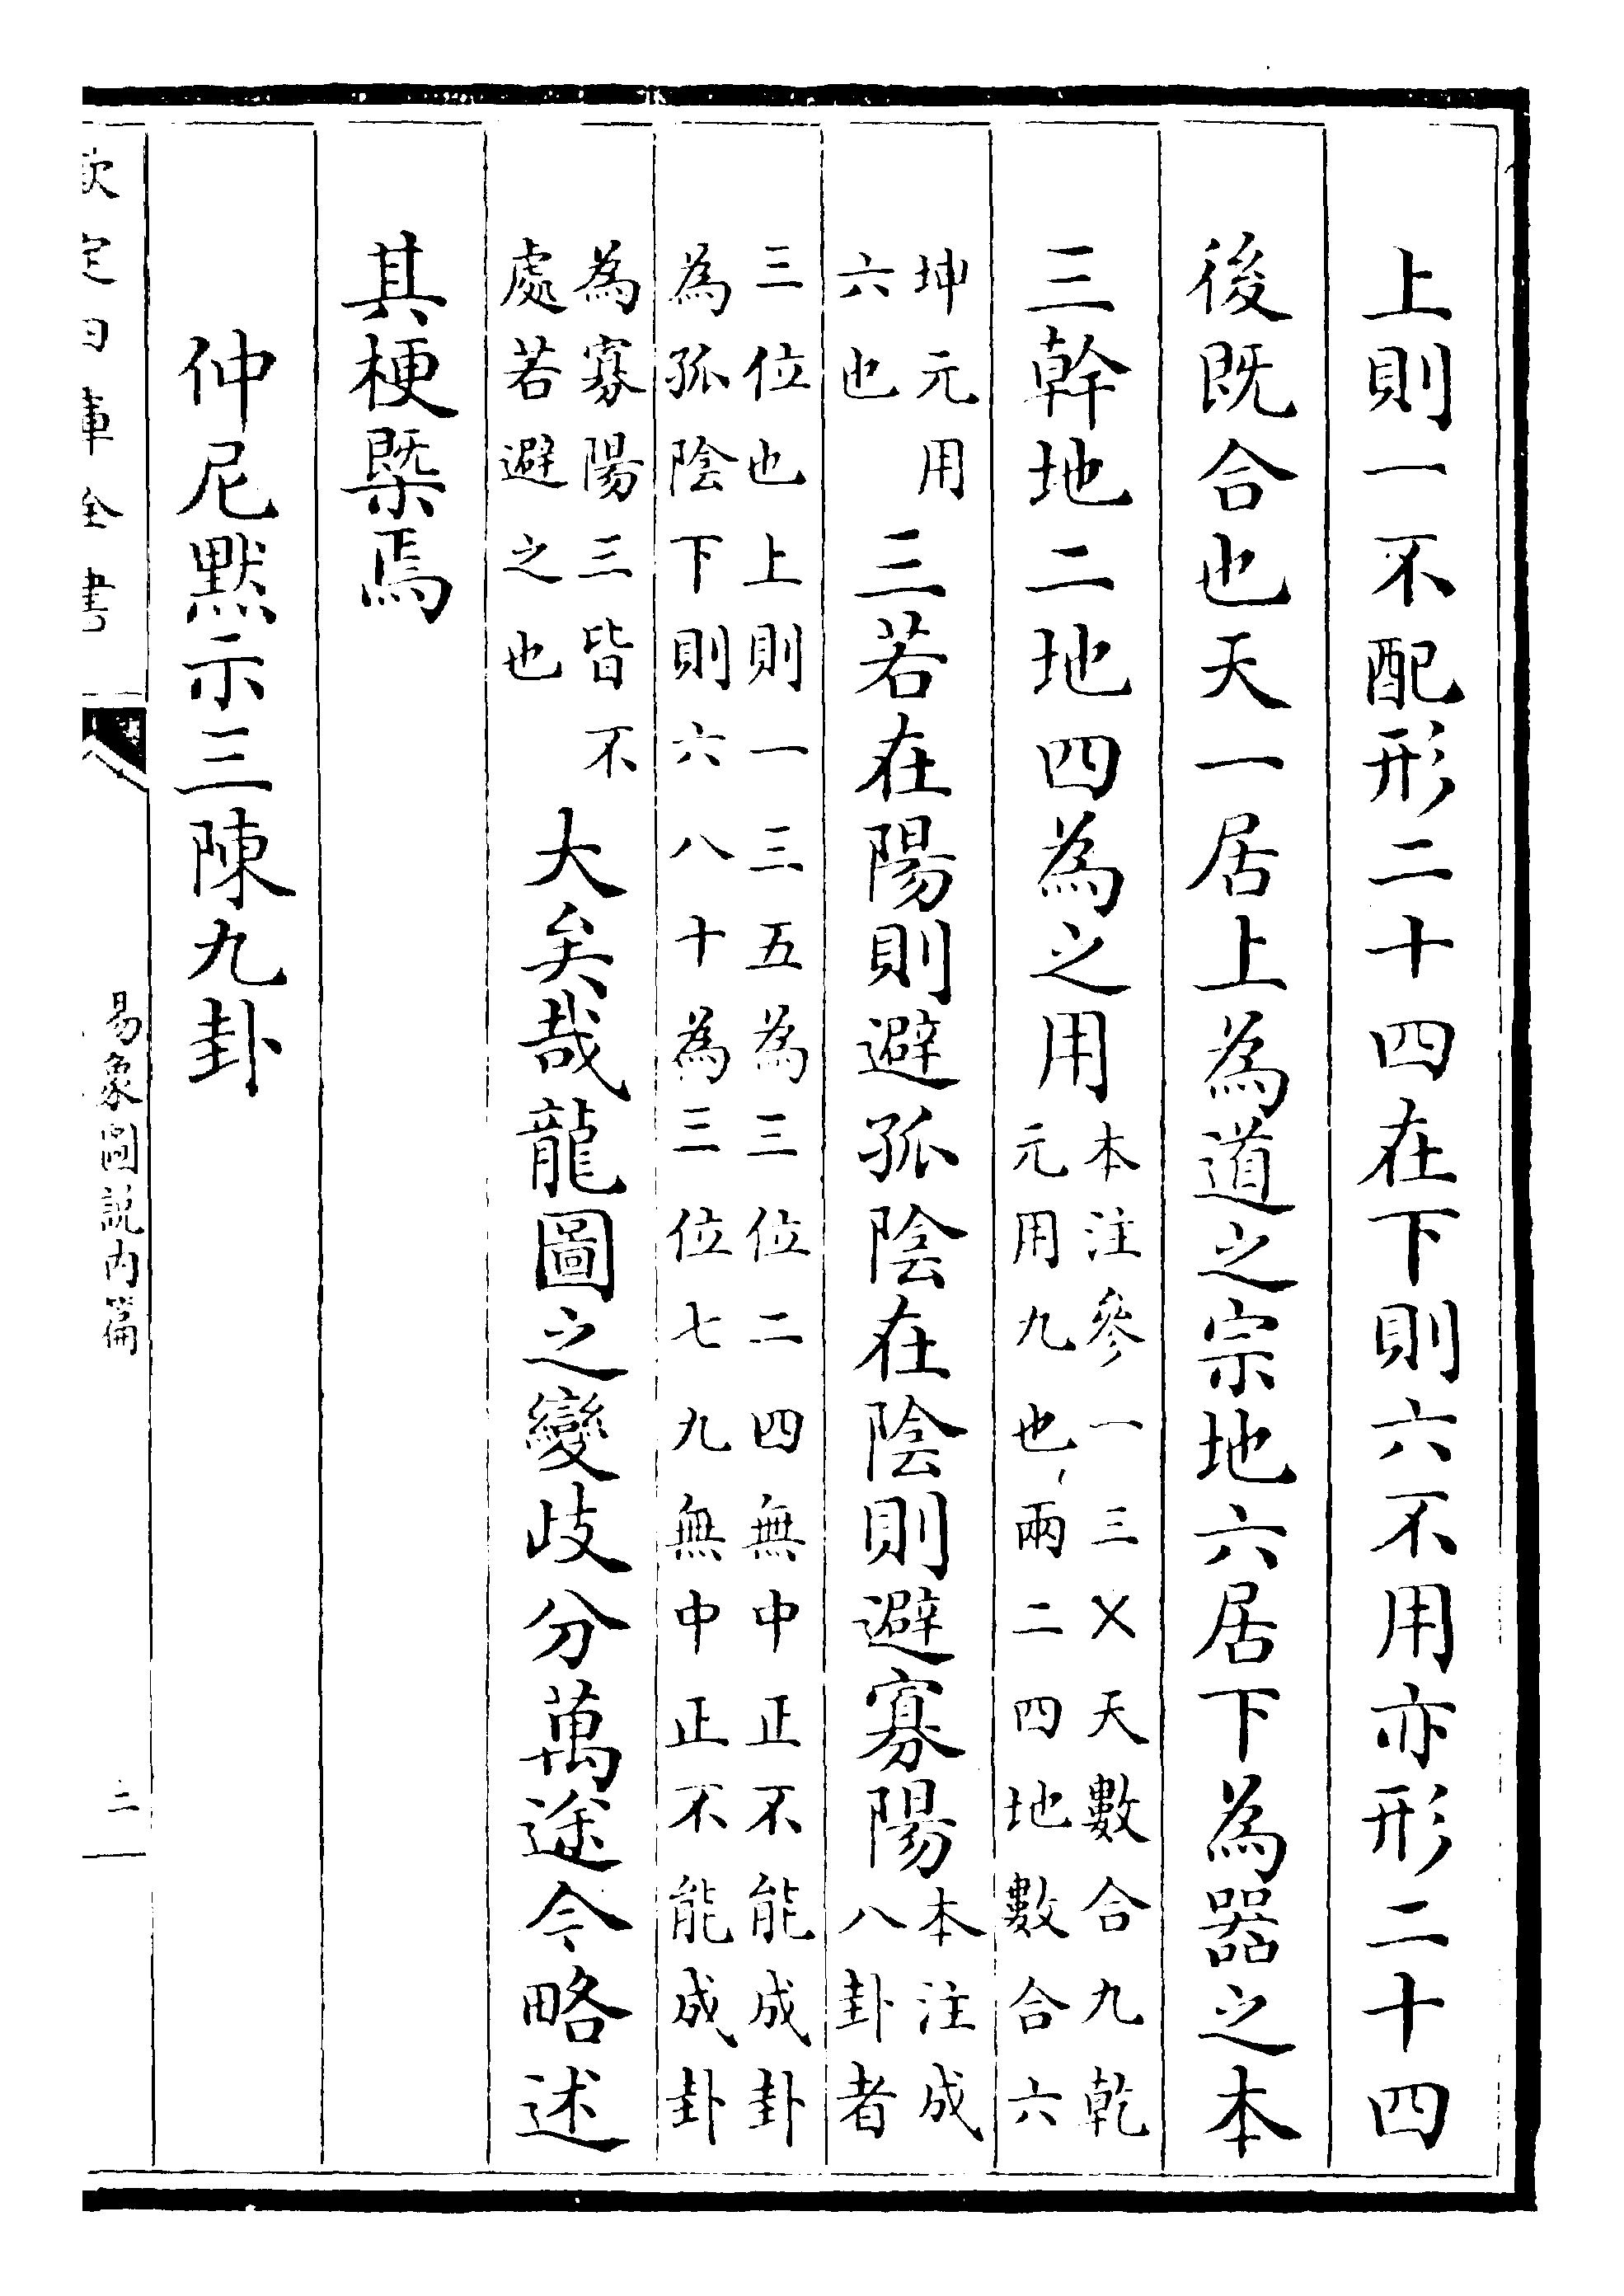 上則一不配形二十四在下則六不用亦形二十四
後既合也天一居上為道之宗地六居下為器之本
三幹地二地四為之用
本注參一三㐅天數合九乾
元用九也兩二四地數合六
坤元用
六也
三若在陽則避孤陰在陰則避寡陽
本注成
八卦者
三位也上則一三五為三位二四無中正不能成卦
為孤陰下則六八十為三位七九無中正不能成卦
為寡陽三皆不
處若避之也
大矣哉龍圖之變歧分萬途今略述
其梗槩焉
仲尼默示三陳九卦
欽定四庫全書
易象圖説内篇
二